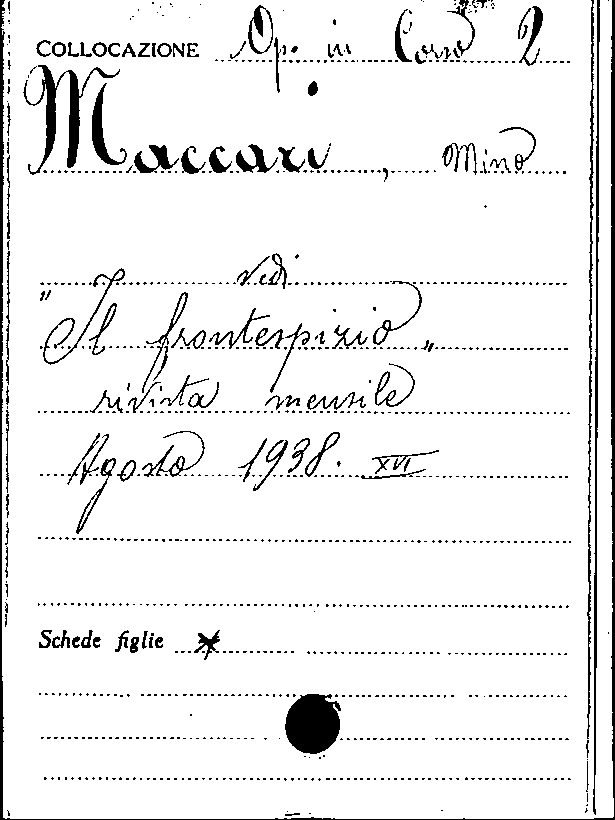 COLLOCAZIONE Op. in Corso 2
Maccari, Mino
vedi
"Il frontespizio"
rivista mensile
Agosto 1938. XVI
Schede figlie